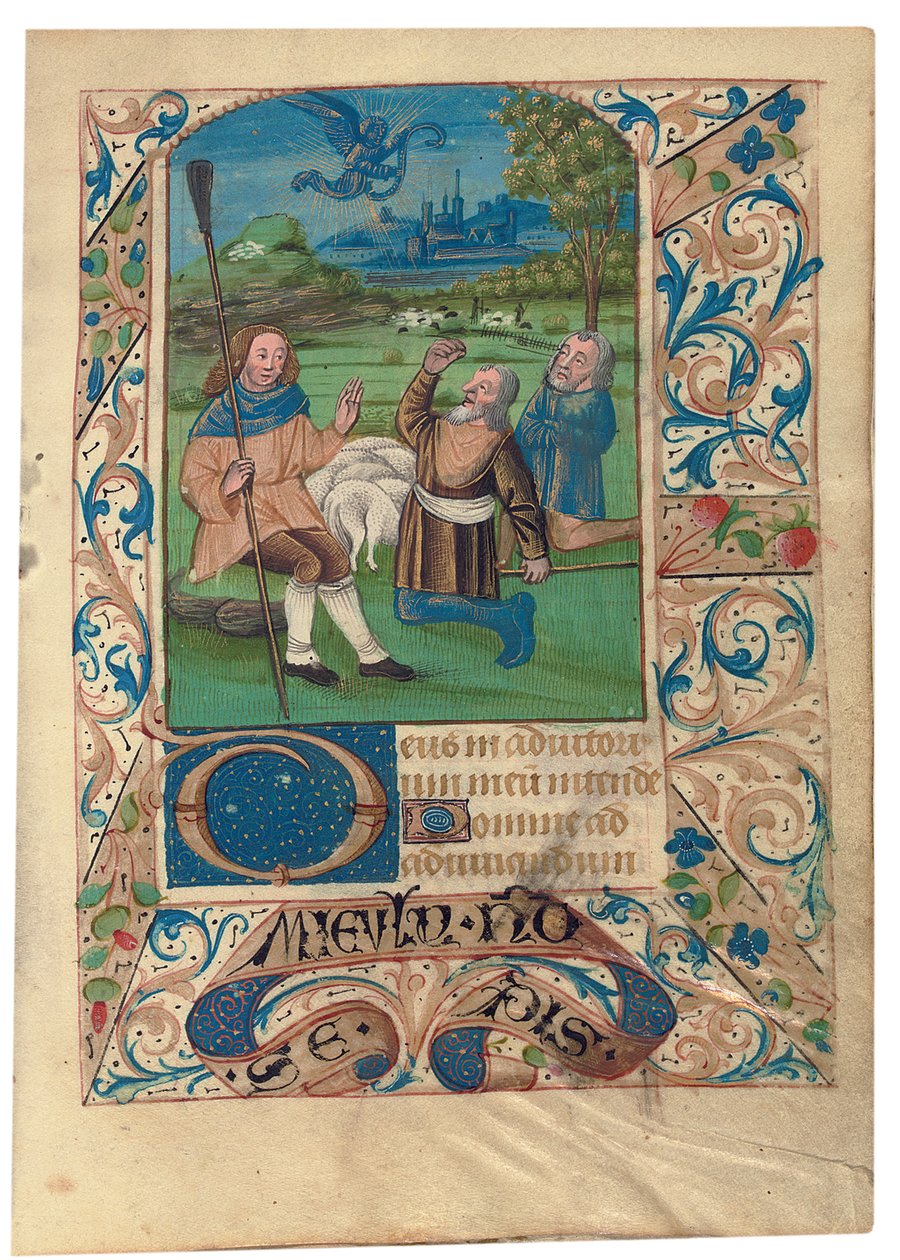 Deus in adiutori
um meū intende
Domine ad
adiuuandum
MIEVLX · ÑO
SE · DIS ·